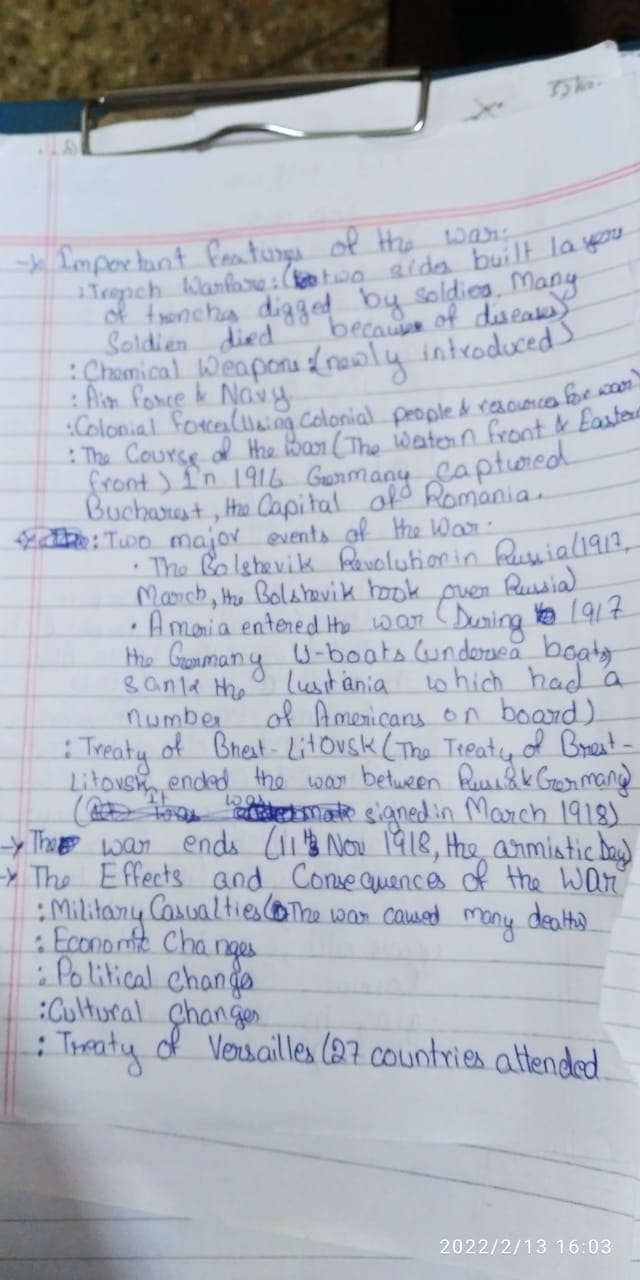 → Important features of the war:
: Trench Warfare: (two sides built layers
of trenches digged by soldies. Many
Soldier died because of diseases)
: Chemical Weapons: (newly introduced)
: Air force & Navy
: Colonial forces (Using Colonial people & resources for war)
: The Course of the War (The Western front & Eastern
front) In 1916 Germany captured
Bucharest, the Capital of Romania.
: Two major events of the War.
• The Bolshevik Revolution in Russia (1917,
March, the Bolshevik took over Russia)
• America entered the war (During 1917
the Germany U-boats (undersea boats)
sank the Lusitania which had a
number of Americans on board)
: Treaty of Brest-Litovsk (The Treaty of Brest-
Litovsk ended the war between Russi & Germany)
(It was signed in March 1918)
→ The war ends (11th Nov 1918, the armistic Day)
→ The Effects and Consequences of the WAR
: Military Casualties (The war caused many deaths)
: Economic Changes
: Political changes
: Cultural changes
: Treaty of Versailles (27 countries attended
2022/2/13 16:03